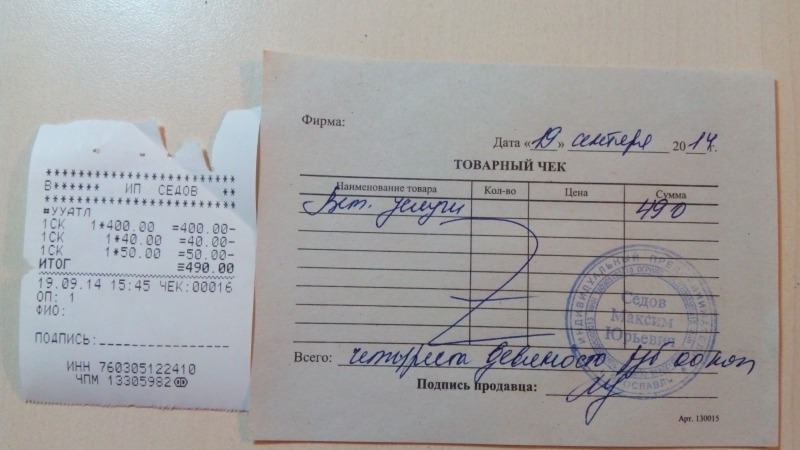 ************************
В****** ИП СЕДОВ **
************************
#УУАТЛ
1СК 1*400.00 =400.00-
1СК 1*40.00 =40.00-
1СК 1*50.00 =50.00-
ИТОГ ≡490.00
19.09.14 15:45 ЧЕК:00016
ОП: 1
ФИО:
ПОДПИСЬ:
ИНН 760305122410
ЧПМ 13305982
Фирма:
Дата «19» сентября 2014г.
ТОВАРНЫЙ ЧЕК
Наименование товара Кол-во Цена Сумма
Вет. услуги 490
ИНДИВИДУАЛЬНЫЙ
Седов
Максим
Юрьевич
Всего: четыреста девяносто руб 00 коп
Подпись продавца:
Арт. 130015